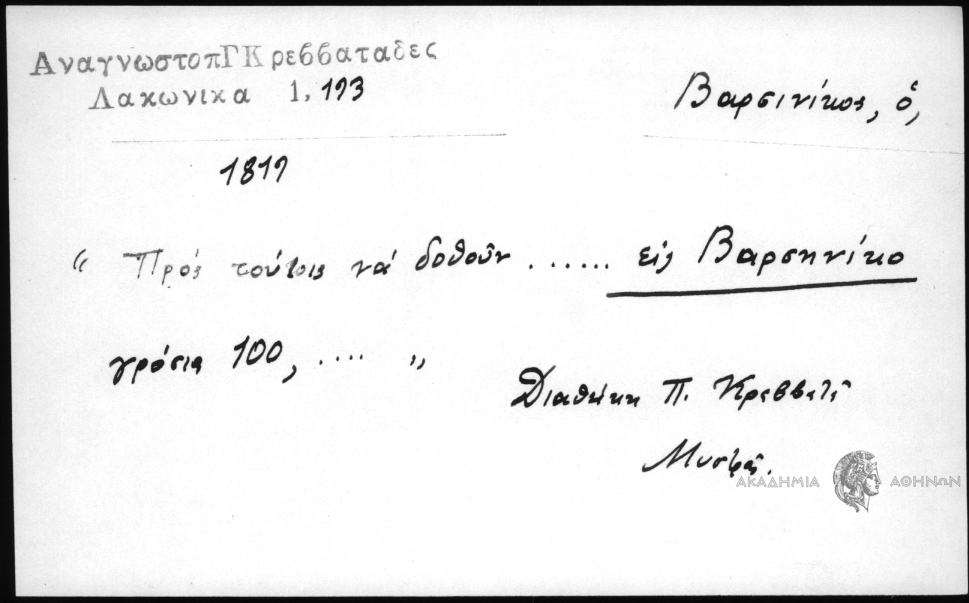 ΑναγνωστοπΓΚρεββαταδες
Λακωνικα 1, 193
Βαρσινίκος, ὁ,
1819
“ Πρός τούτοις νά δοθοῦν ...... εἰς Βαρσηνίκο
γρόσια 100, .... „
Διαθήκη Π. Κρεββατᾶ
Μυστρᾶς.
ΑΚΑΔΗΜΙΑ ΑΘΗΝΩΝ